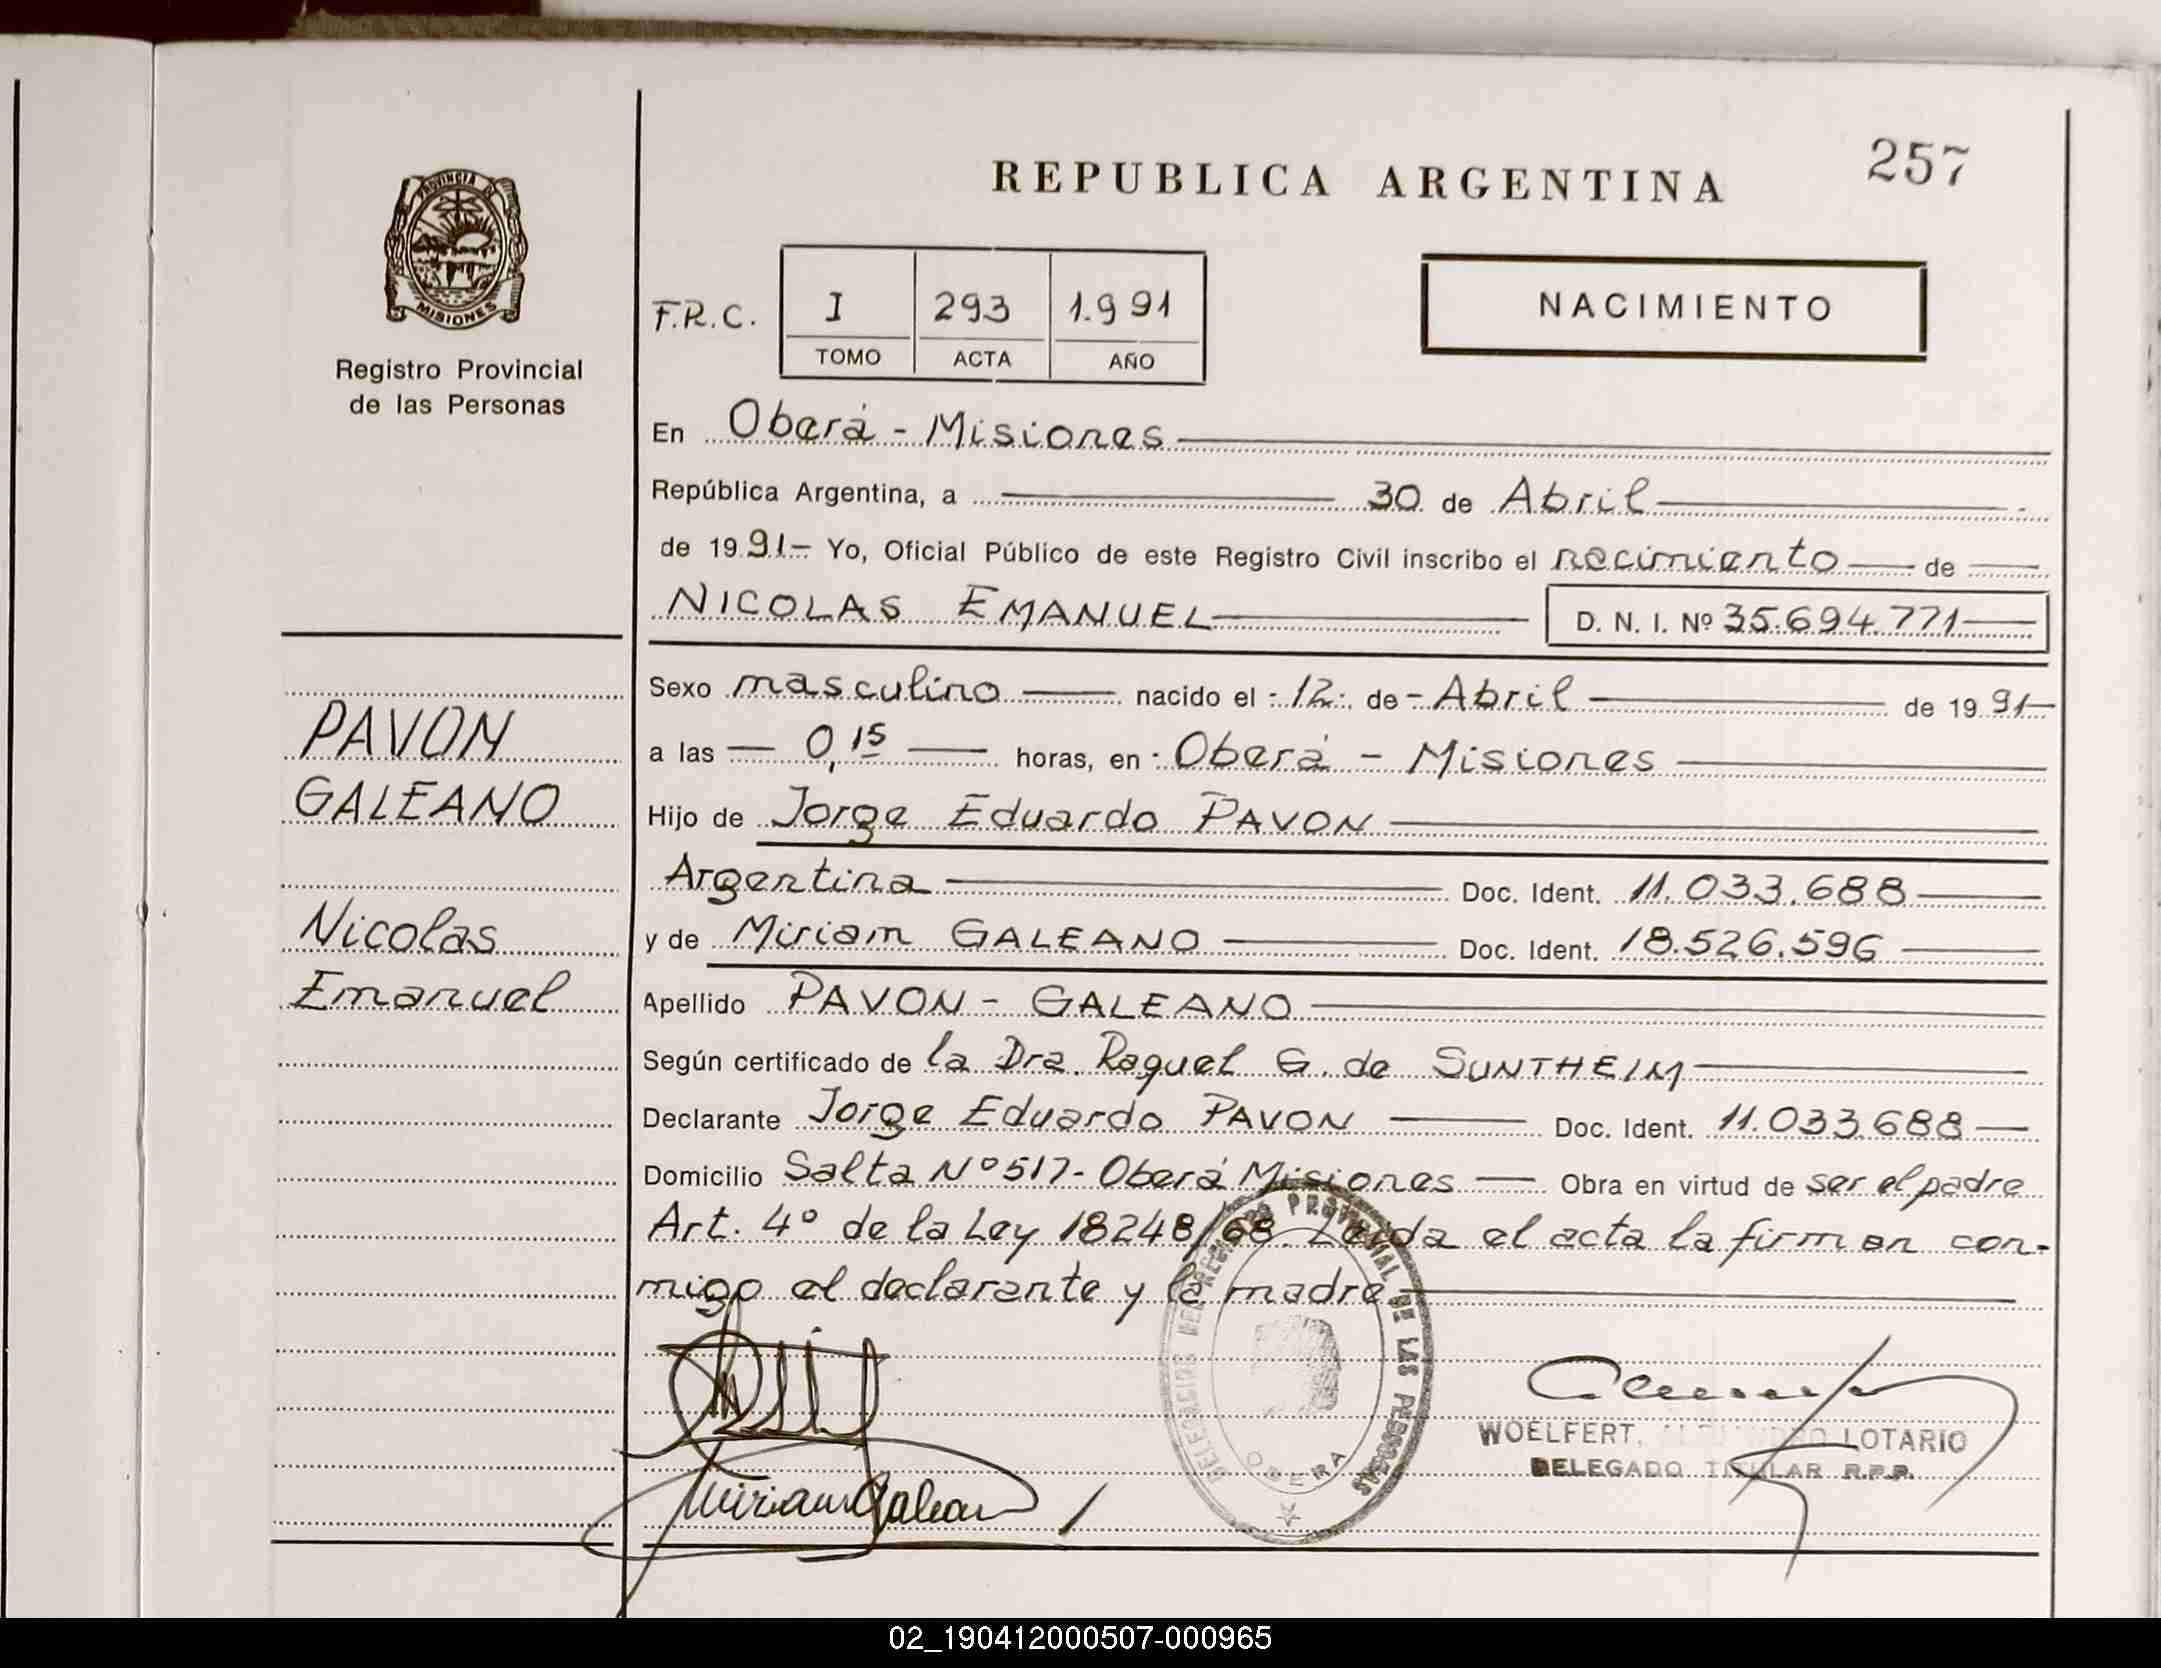 REPUBLICA ARGENTINA
257
PROVINCIA DE
MISIONES
Registro Provincial
de las Personas
F.R.C.
I 293 1.991
TOMO ACTA AÑO
NACIMIENTO
En Oberá - Misiones
República Argentina, a 30 de Abril
de 1991- Yo, Oficial Público de este Registro Civil inscribo el nacimiento de
NICOLAS EMANUEL
D. N. I. Nº 35.694.771
PAVON
GALEANO
Nicolas
Emanuel
Sexo masculino nacido el -12- de - Abril de 1991-
a las 0,15 horas, en - Oberá - Misiones
Hijo de Jorge Eduardo PAVON
Argentina Doc. Ident. 11.033.688
y de Miriam GALEANO Doc. Ident. 18.526.596
Apellido PAVON - GALEANO
Según certificado de la Dra. Raquel G. de SUNTHEIM
Declarante Jorge Eduardo PAVON Doc. Ident. 11.033.688
Domicilio Salta Nº 517- Oberá Misiones Obra en virtud de ser el padre
Art. 4º de la Ley 18248/68. Leída el acta la firman con-
migo el declarante y la madre
DELEGACION DEL REGISTRO PROVINCIAL DE LAS PERSONAS
OBERA
Miriam Galeano
WOELFERT, ALEJANDRO LOTARIO
DELEGADO TITULAR R.P.P.
02_190412000507-000965